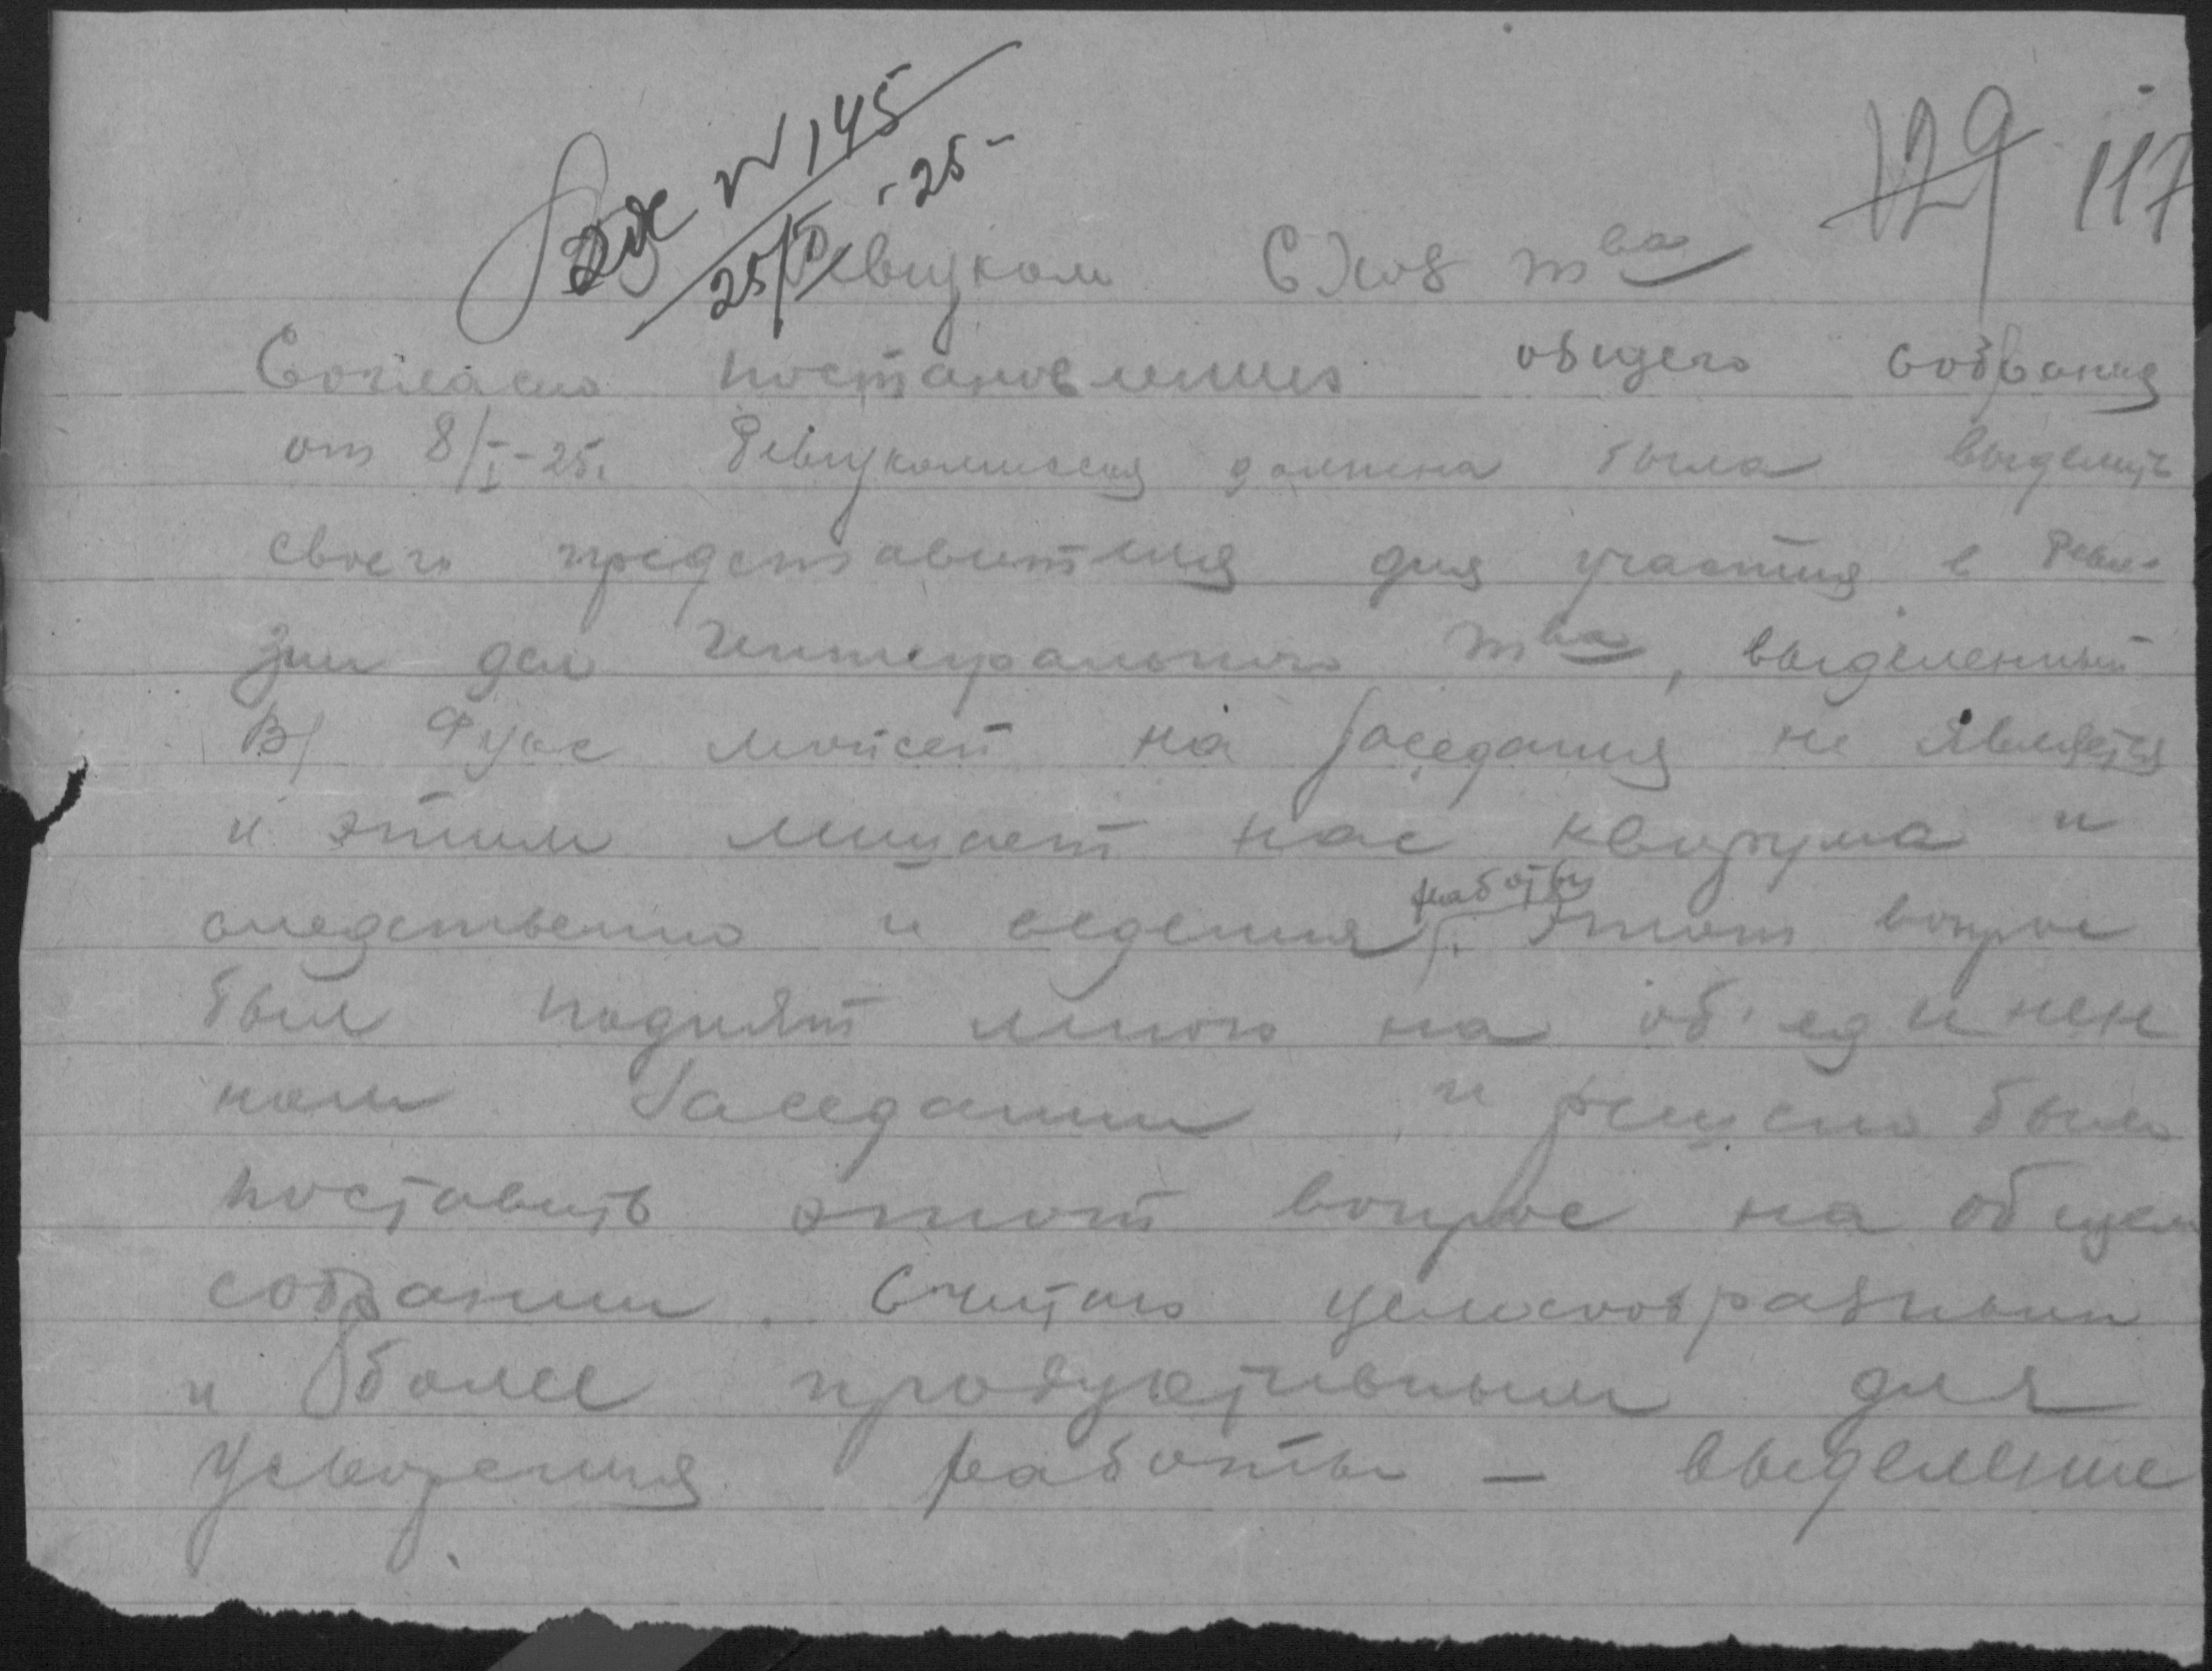 Вх № 145
25/I -25-
129 117
Ревизком СХоз тва
Согласно постановлению общего собрания
от 8/I-25. Ревизкомиссия должна была выделить
своего представителя для участия в Реви-
зии дел Интегрального тва, выделенный
на заседания не является
и этим лишает нас кворума и
следственно и ведения работы. Этот вопрос
был поднят мною на об'единен
ном Заседании и решено было
поставить этот вопрос на общем
собрании. Считаю целесообразным
и более продуктивным для
ускорения работы — выделение